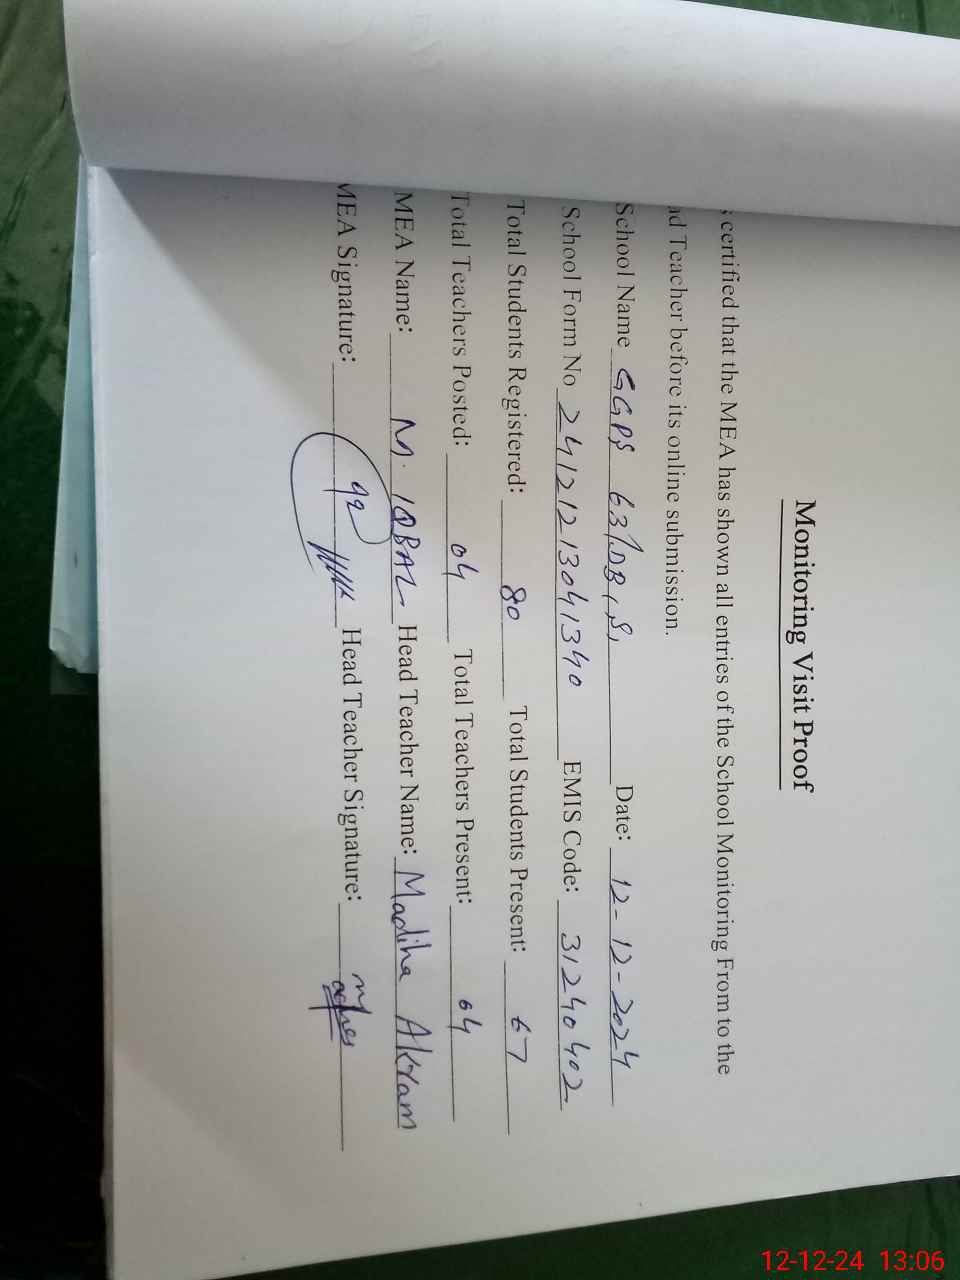 Monitoring Visit Proof
s certified that the MEA has shown all entries of the School Monitoring From to the
ad Teacher before its online submission.
School Name GGPS 63/DB,S, Date: 12-12-2024
School Form No 24121213041340 EMIS Code: 31240402
Total Students Registered: 80 Total Students Present: 67
Total Teachers Posted: 04 Total Teachers Present: 04
MEA Name: M. IQBAL Head Teacher Name: Madiha Akram
MEA Signature: 92 Head Teacher Signature:
12-12-24 13:06